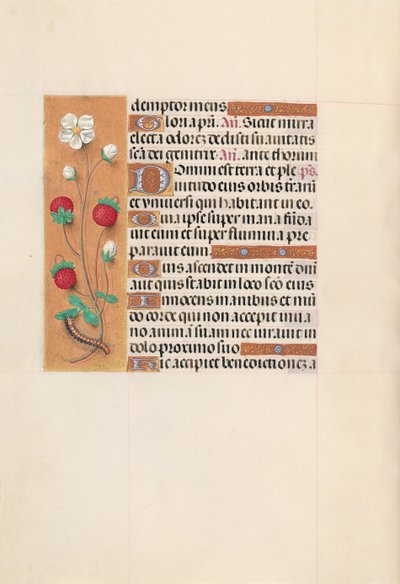 demptor meus
Gloria pr̄i. An̄. Sicut mirra
electa odorez dedisti suauitatis
sc̄a dei genitrix. An̄. ante thorum
Domini est terra et ple p̄s.
nitudo eius orbis trarū
et vniuersi qui habitant in eo.
Quia ipse super maria fūda
uit eum et super flumina pre
parauit eum.
Quis ascendet in montē dn̄i
aut quis stabit in loco sc̄o eius
Innocens manibus et mū
do corde qui non accepit in ua
no animā suam nec iurauit in
dolo proximo suo
Hic accipiet benedictionez a